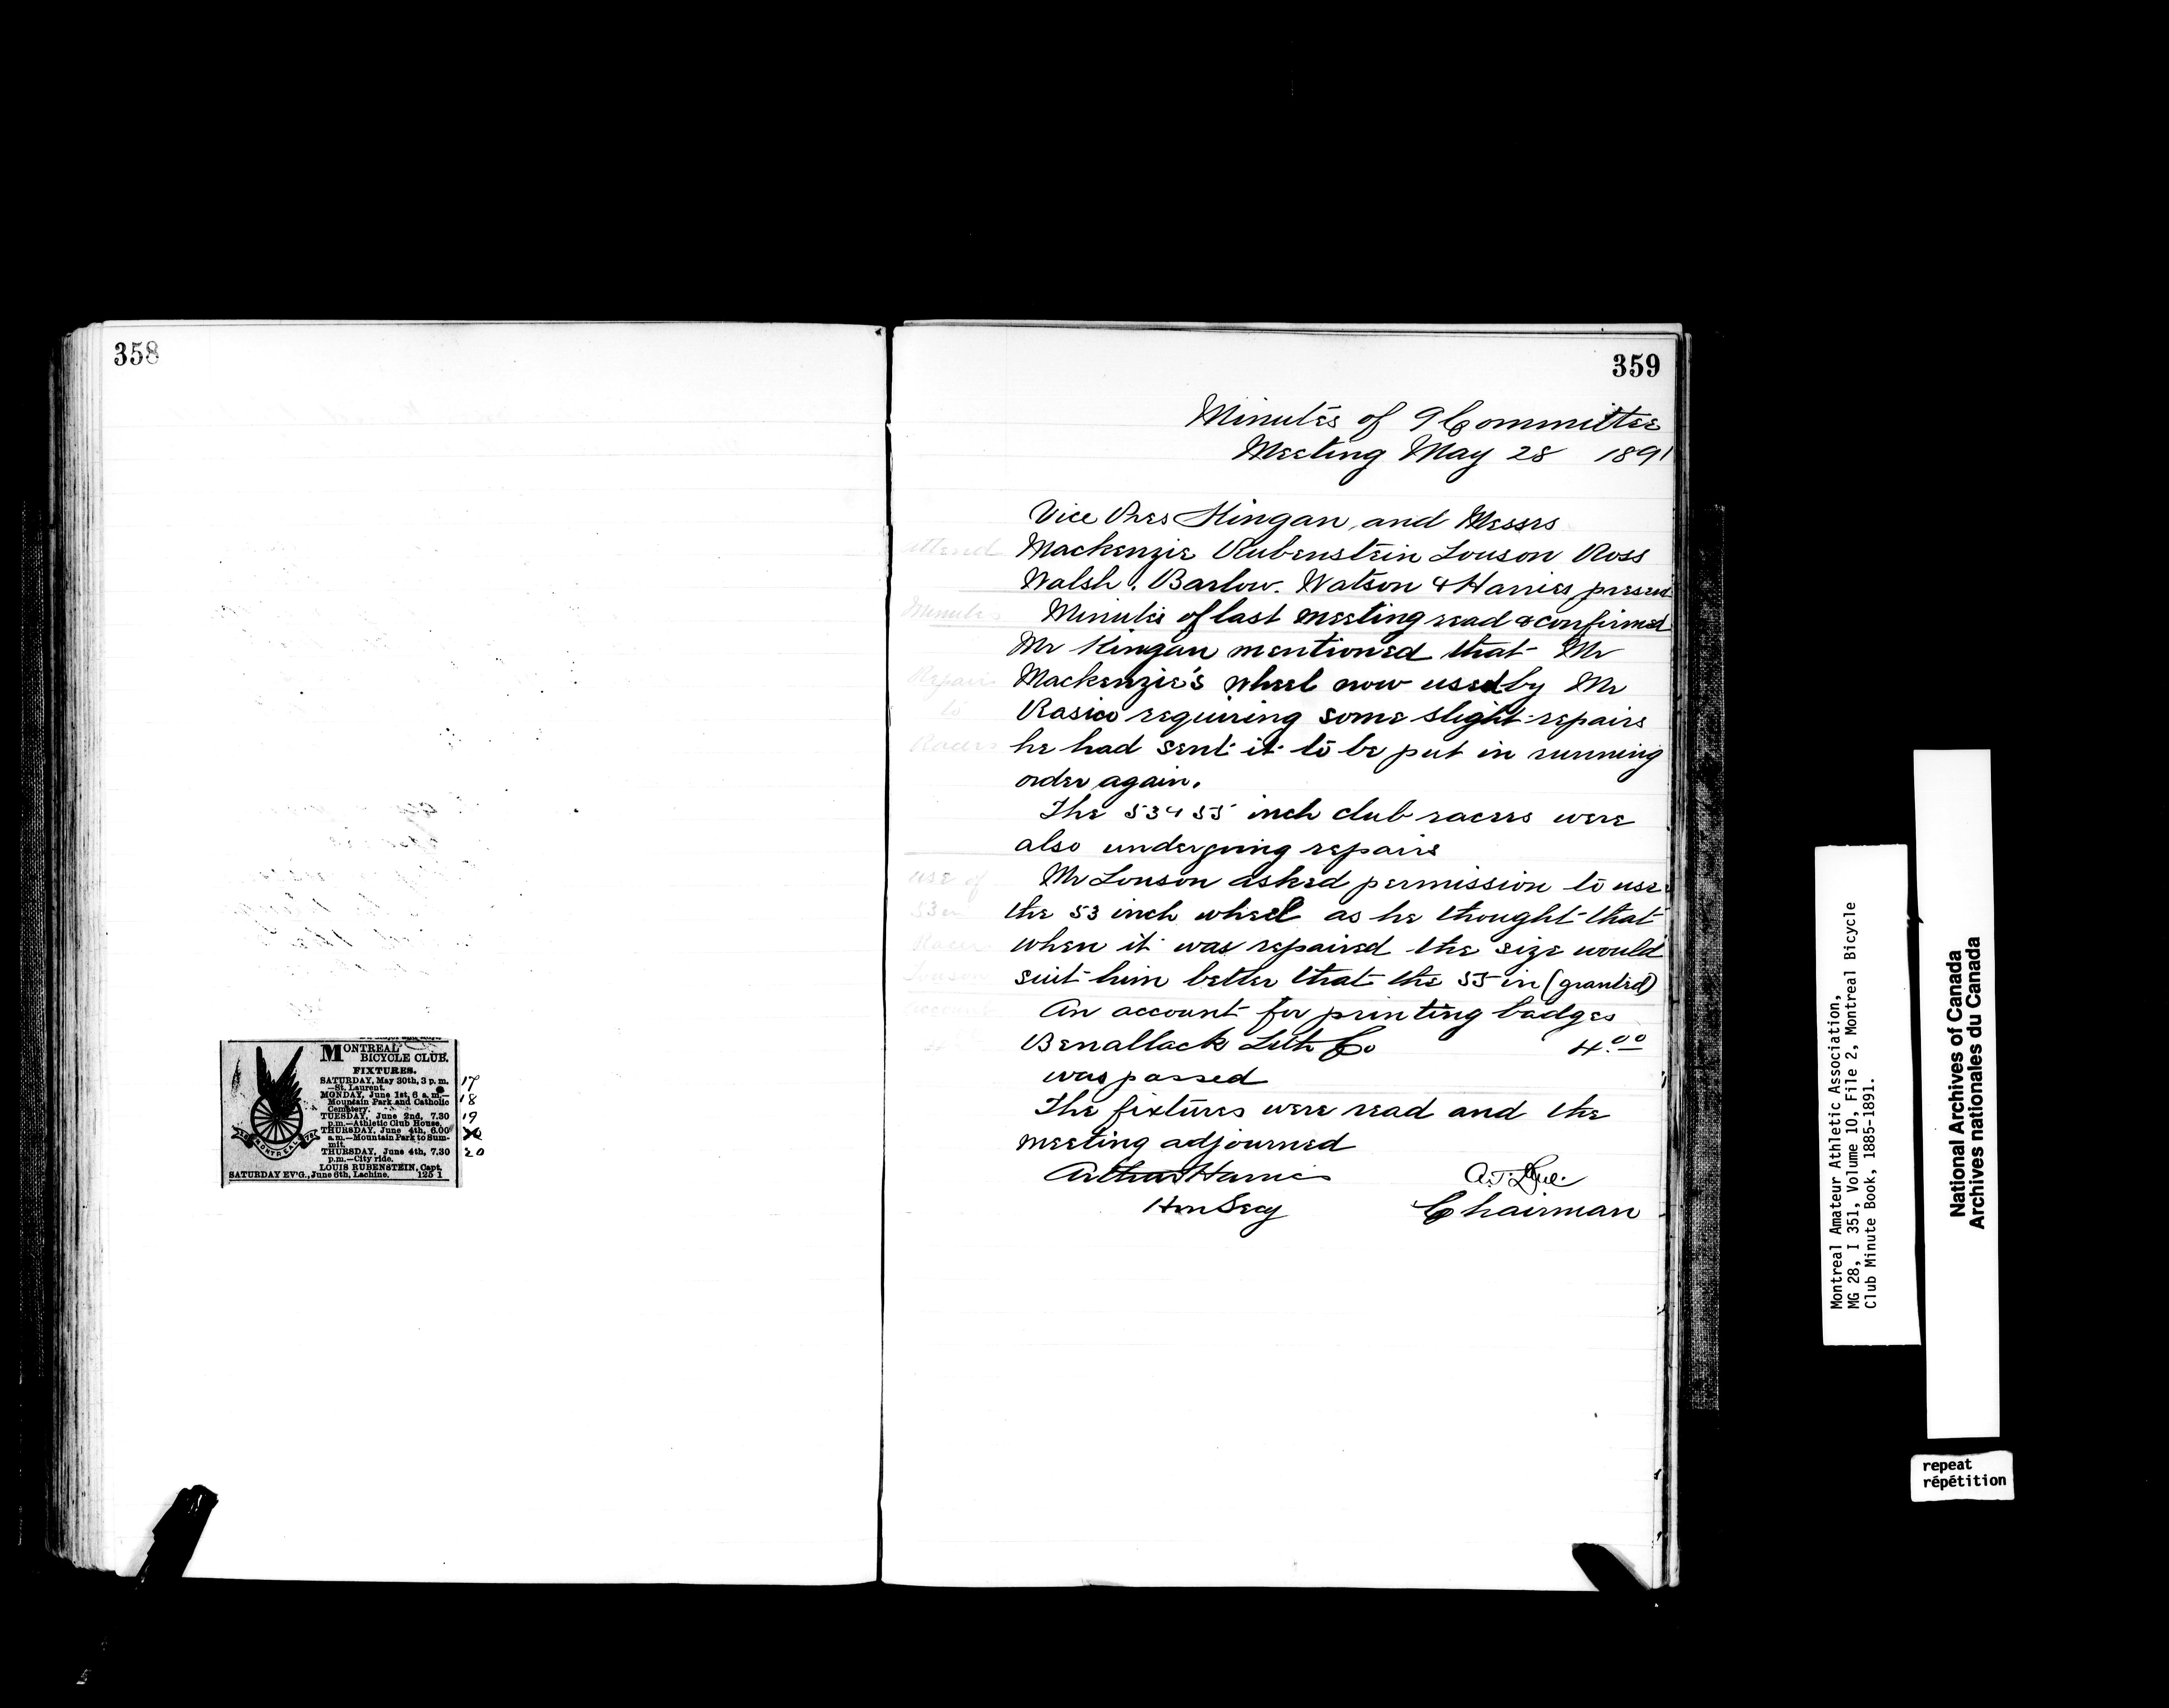 358
MONTREAL
BICYCLE CLUB.
FIXTURES.
SATURDAY, May 30th, 3 p. m.
—St. Laurent.
MONDAY, June 1st, 6 a. m.—
Mountain Park and Catholic
Cemetery.
TUESDAY, June 2nd, 7.30
p.m.—Athletic Club House.
THURSDAY, June 4th, 6.00
a.m.—Mountain Park to Sum-
mit.
THURSDAY, June 4th, 7.30
p.m.—City ride.
LOUIS RUBENSTEIN, Capt.
SATURDAY EV'G., June 6th, Lachine. 125 1
17
18
19
20
MONTREAL
359
Minutes of Committee
Meeting May 28 1891
Vice Pres Kingan and Messrs
attend Mackenzie Rubenstein Louson Ross
Walsh, Barlow. Watson & Harries present
Minutes Minutes of last meeting read & confirmed
Mr Kingan mentioned that Mr
Repairs Mackenzie's wheel now used by Mr
to Rasico requiring some slight repairs
Racers he had sent it to be put in running
order again.
The 53 & 55 inch club racers were
also undergoing repairs
use of Mr Louson asked permission to use
53 in the 53 inch wheel as he thought that
Racer when it was repaired the size would
Louson suit him better that the 55 in (granted)
account An account for printing badges
4 Benallack Lith Co 4.00
was passed
The fixtures were read and the
meeting adjourned
Arthur Harries A.T. Lane
Hon Secy Chairman
Montreal Amateur Athletic Association,
MG 28, I 351, Volume 10, File 2, Montreal Bicycle
Club Minute Book, 1885-1891.
National Archives of Canada
Archives nationales du Canada
repeat
répétition